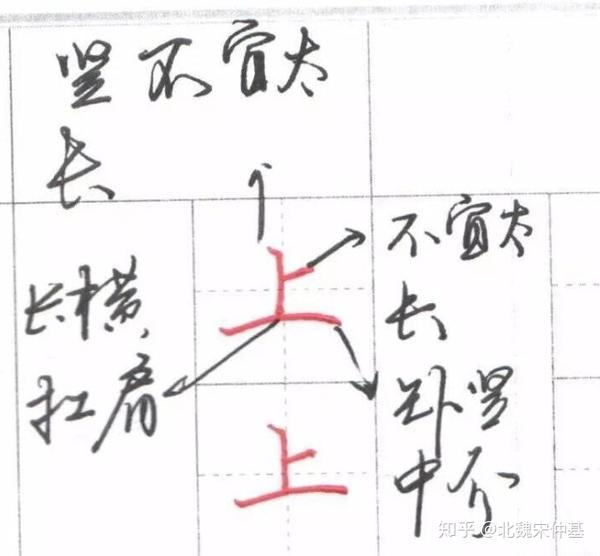 竖不宜太
长
上
不宜太
长
长横
扛肩
竖
中
上
知乎 @北魏宋仲基